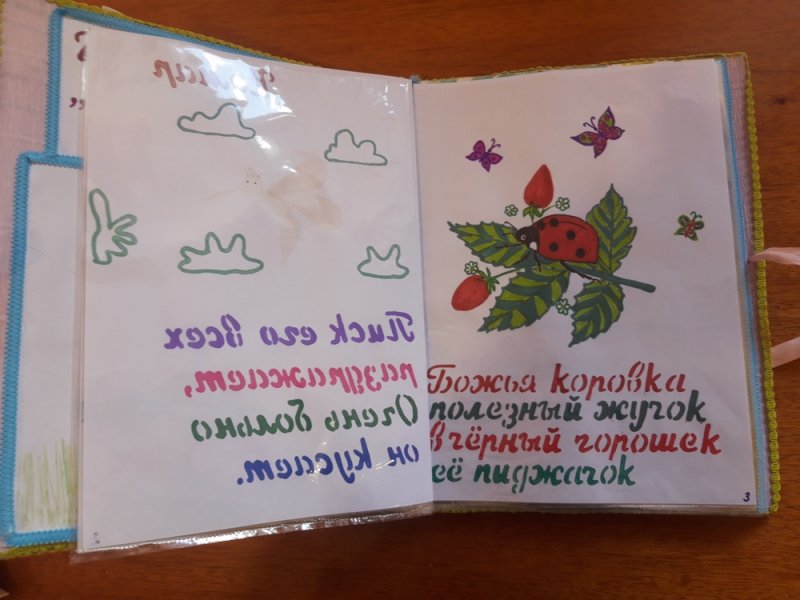 Писк его всех
раздражает,
Очень больно
он кусает.
Божья коровка
полезный жучок
в чёрный горошек
её пиджачок
3